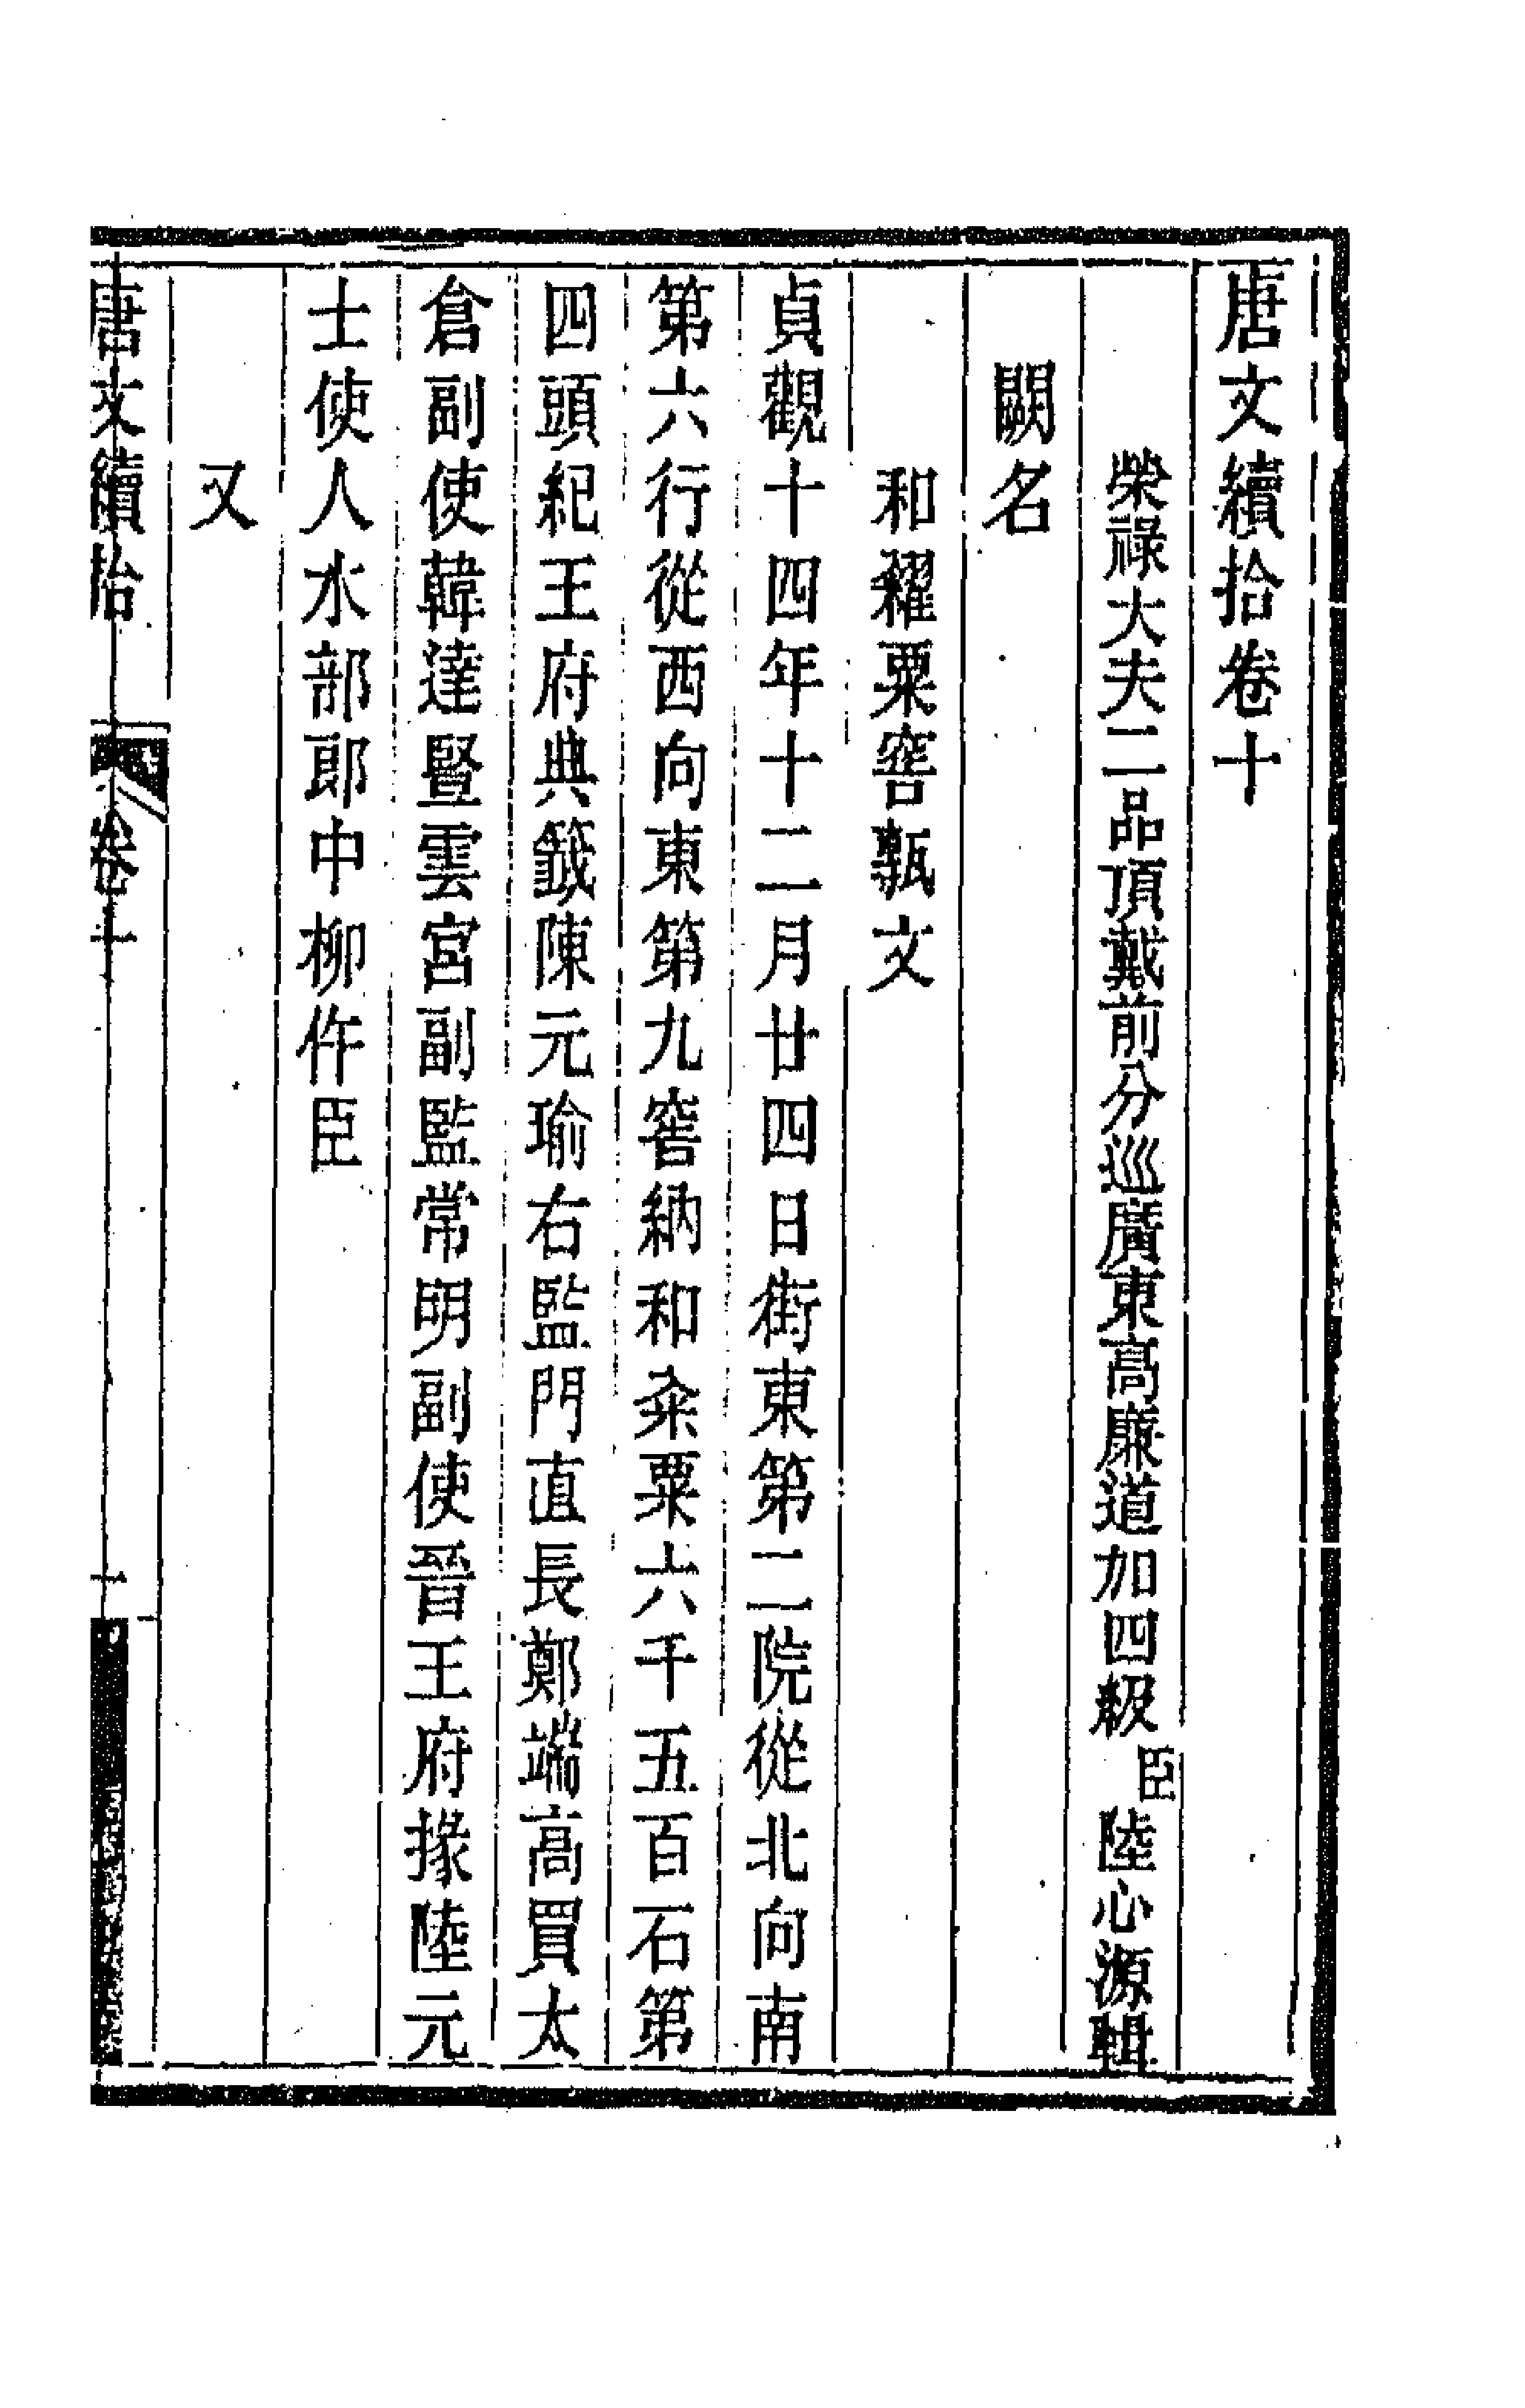 唐文續拾卷十
榮祿大夫二品頂戴前分巡廣東高廉道加四級臣陸心源輯
闕名
和糴粟窖甎文
貞觀十四年十二月廿四日街東第二院從北向南
第六行從西向東第九窖納和籴粟六千五百石第
四頭紀王府典籤陳元瑜右監門直長鄭端高買太
倉副使韓達暨雲宮副監常明副使晉王府掾陸元
士使人水部郎中柳佐臣
又
唐文續拾 卷十 一